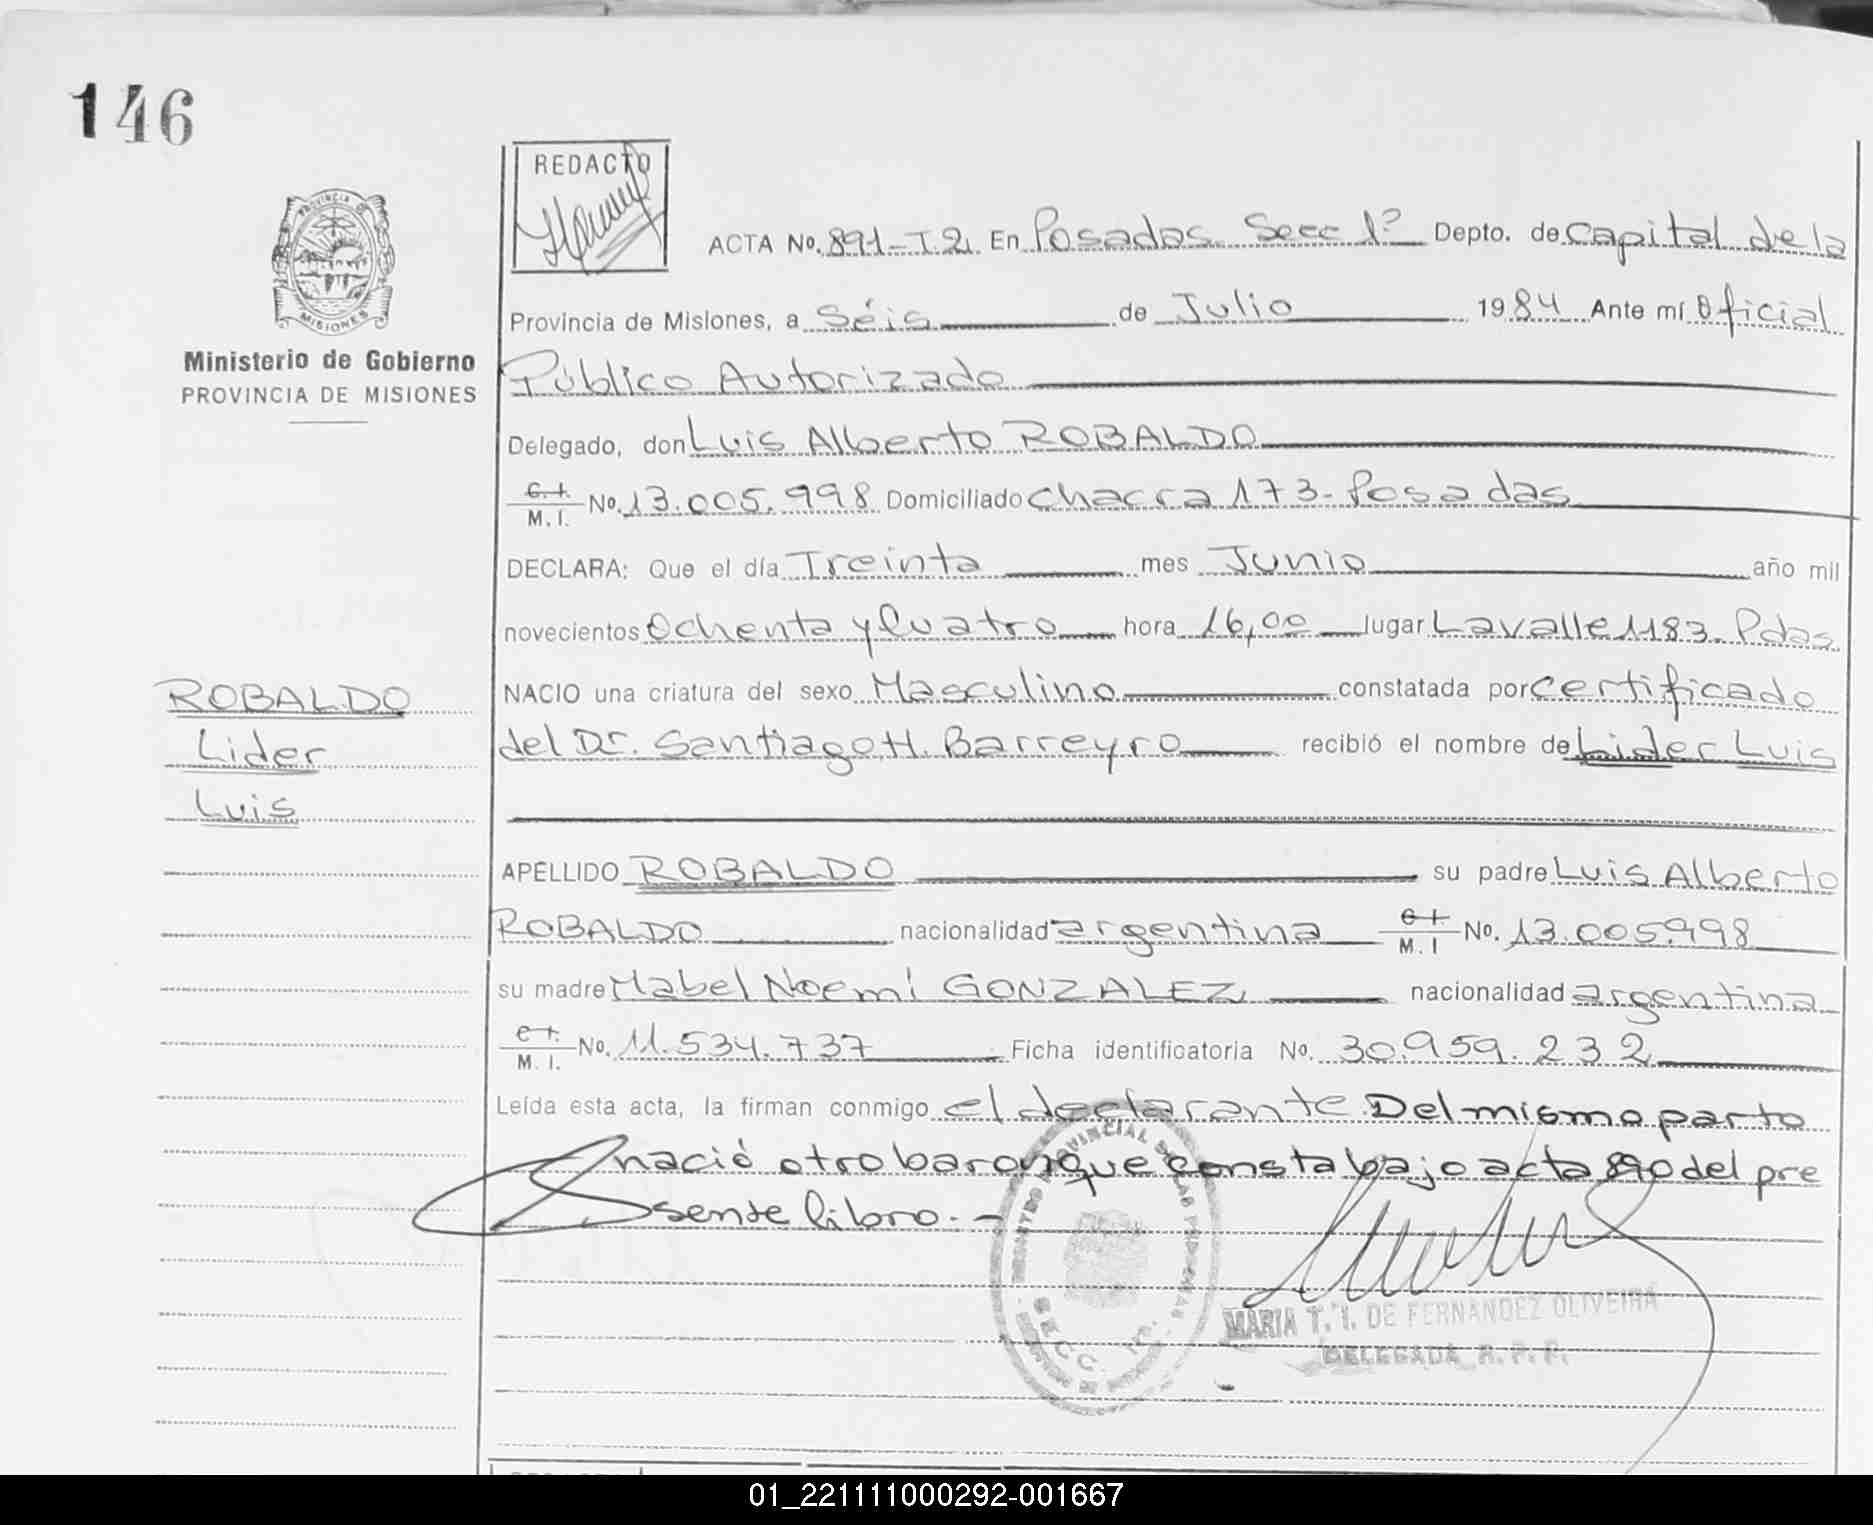 146
REDACTO
ACTA No. 891-T2. En Posadas Secc 1º Depto. de Capital de la
PROVINCIA DE
MISIONES
Provincia de Misiones, a Séis de Julio 1984 Ante mí Oficial
Ministerio de Gobierno
PROVINCIA DE MISIONES
Público Autorizado
Delegado, don Luis Alberto ROBALDO
C.I. M.I. No. 13.005.998 Domiciliado Chacra 173-Posadas
DECLARA: Que el día Treinta mes Junio año mil
novecientos Ochenta y Cuatro hora 16,00 lugar Lavalle 1183-Pdas.
ROBALDO
Lider
Luis
NACIO una criatura del sexo Masculino constatada por certificado
del Dr. Santiago H. Barreyro recibió el nombre de Lider Luis
APELLIDO ROBALDO su padre Luis Alberto
ROBALDO nacionalidad argentina C.I. M.I No. 13.005.998
su madre Mabel Noemí GONZALEZ nacionalidad argentina
C.I. M.I. No. 11.534.737 Ficha identificatoria No. 30.959.232
Leída esta acta, la firman conmigo el declarante. Del mismo parto
nació otro baron que consta bajo acta 890 del pre
sente libro.-
MARIA T. I. DE FERNANDEZ OLIVEIRA
DELEGADA R. P. P.
01_221111000292-001667